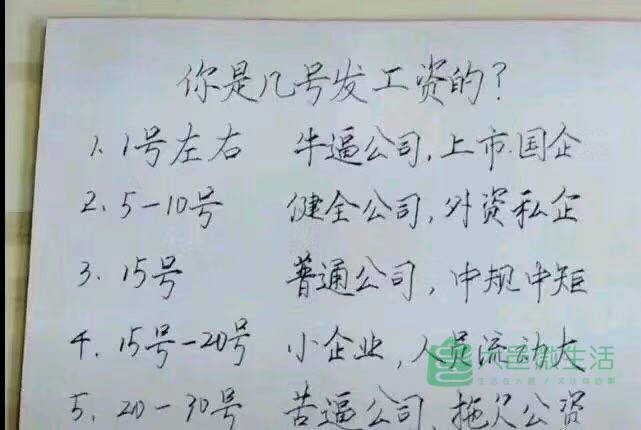 你是几号发工资的?
1、1号左右 牛逼公司,上市.国企
2、5-10号 健全公司,外资私企
3、15号 普通公司,中规中矩
4、15号-20号 小企业,人员流动大
5、20-30号 苦逼公司,拖欠公资
六邑微生活